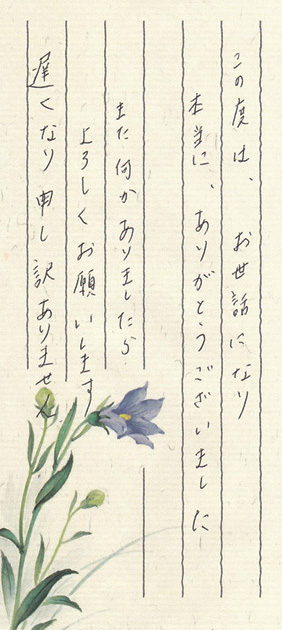 この度は、お世話になり
本当に、ありがとうございました
また何かありましたら
よろしくお願いします
遅くなり申し訳ありません